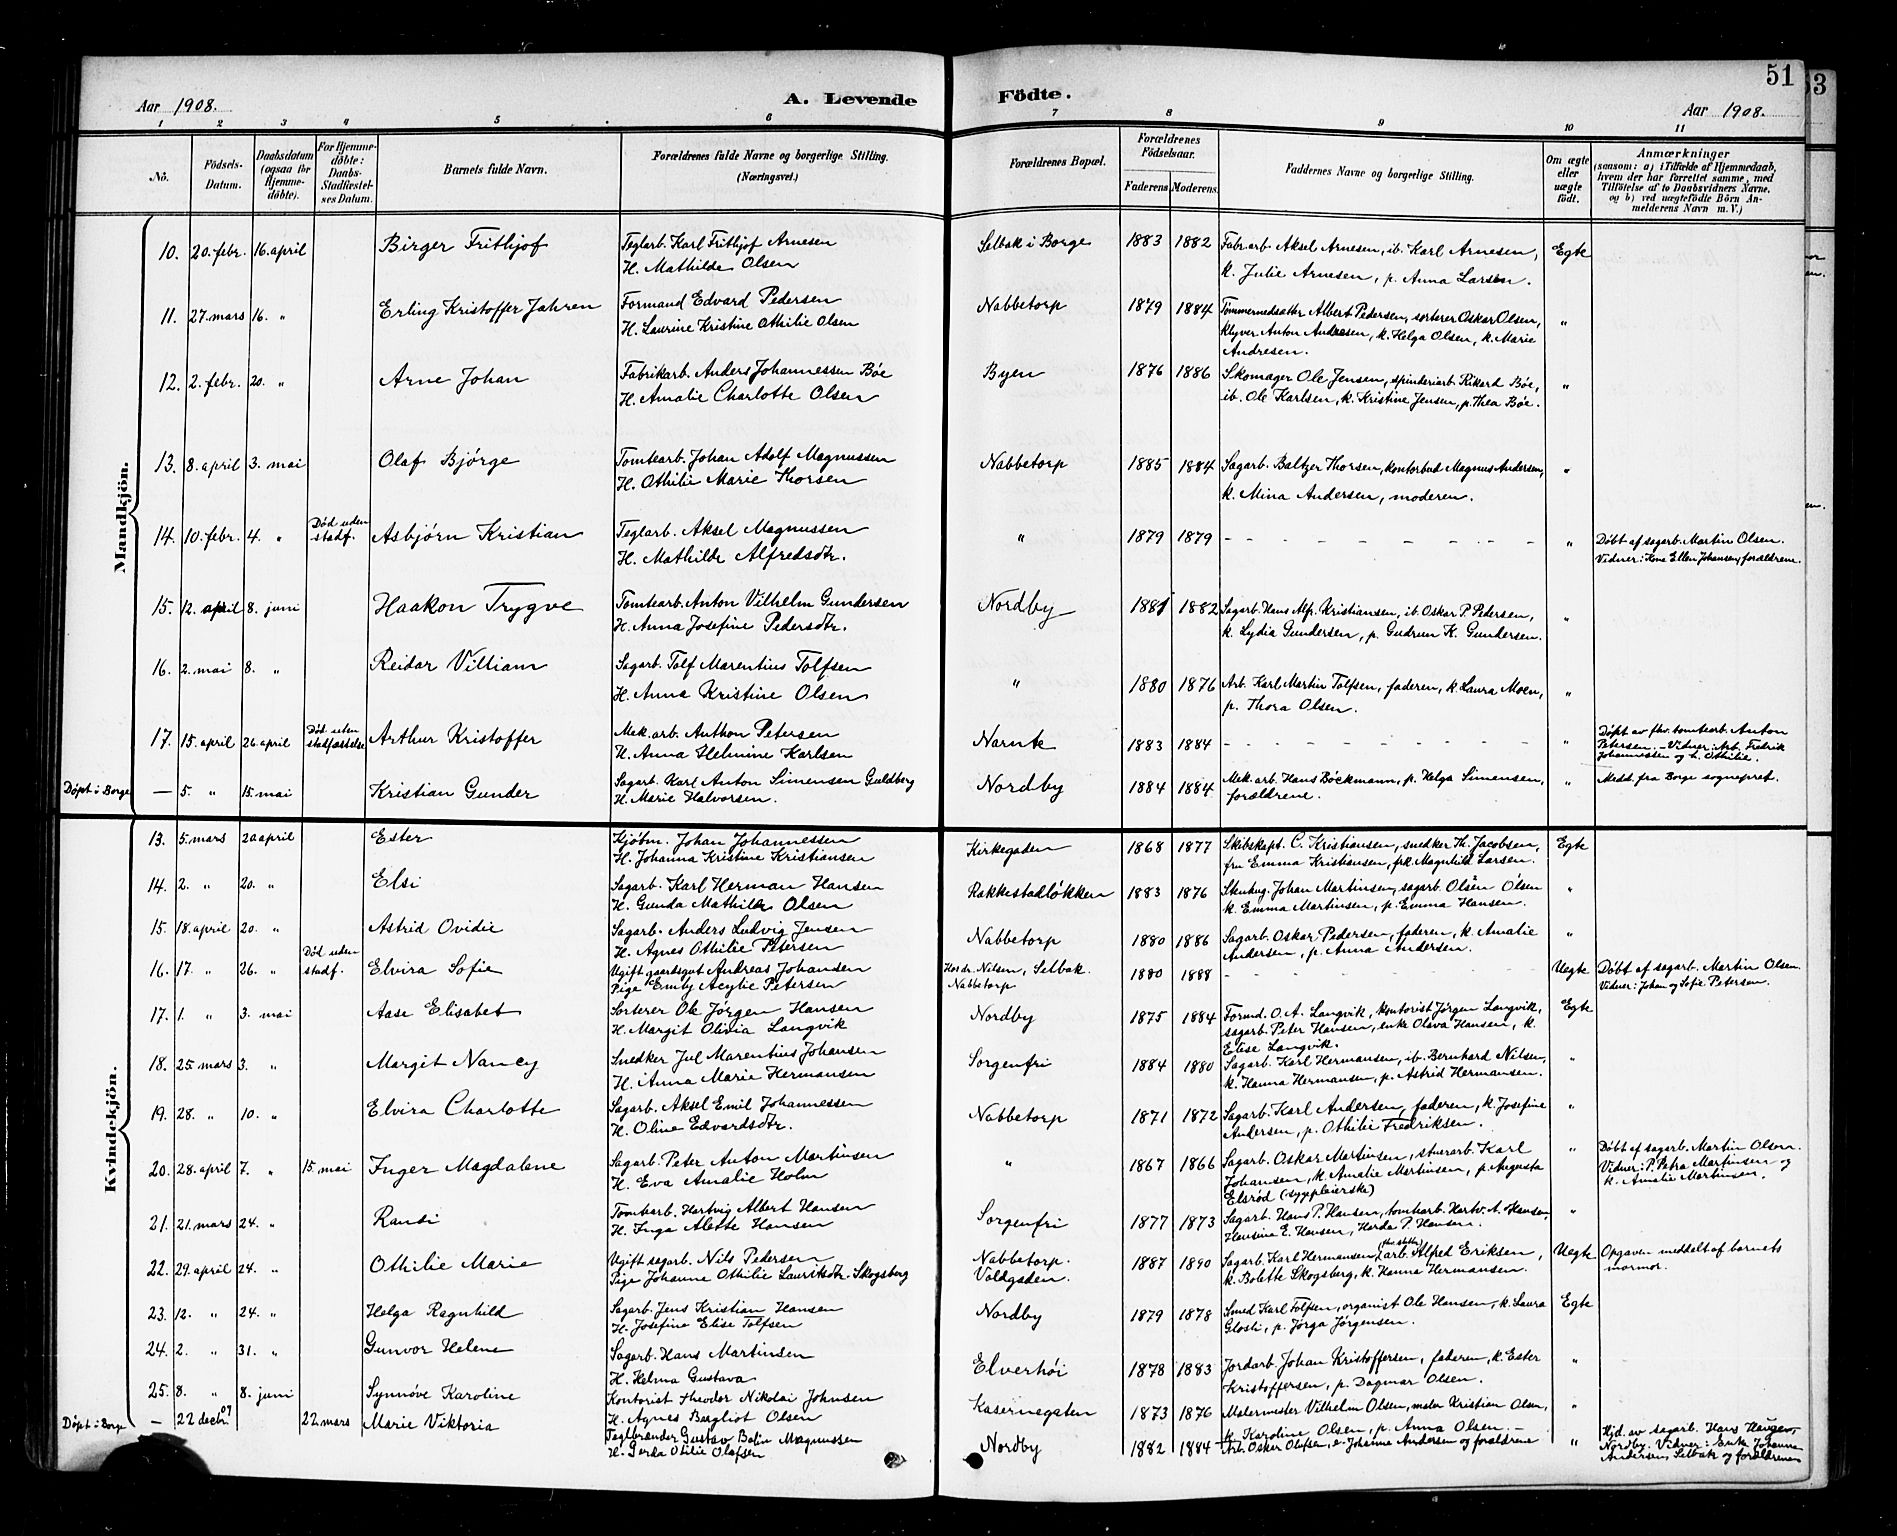 51
53
Aar 1908.
A. Levende Födte.
Aar 1908.
1 2 3 4 5 6 7 8 9 10 11
No.
Födsels-Datum.
Daabsdatum (ogsaa for Hjemme-döbte).
For Hjemme-döbte: Daabs-Stadfæstel-ses Datum.
Barnets fulde Navn.
Forældrenes fulde Navne og borgerlige Stilling. (Næringsvei.)
Forældrenes Bopæl.
Forældrenes Födselsaar.
Faderens. Moderens.
Faddernes Navne og borgerlige Stilling.
Om ægte eller uægte födt.
Anmærkninger
(saasom: a) i Tilfælde af Hjemmedaab, hvem der har forrettet samme, med Tilföielse af to Daabsvidners Navne. og b) ved uægtefödte Börn An-melderens Navn m. V.)
Mandkjön.
10. 20. febr. 16. april Birger Frithjof Teglarb. Karl Frithjof Arnesen Selbak i Borge 1883 1882 Fabr.arb. Aksel Arnesen, ib. Karl Arnesen, Egte
H. Mathilde Olsen k. Julie Arnesen, p. Anna Larsen.
11. 27. mars 16. " Erling Kristoffer Jahren Formand Edvard Pedersen Nabbetorp 1879 1884 Tømmermedsatter Albert Pedersen, sorterer Oskar Olsen, "
H. Laurine Kristine Othilie Olsen klyver Anton Andresen, k. Helga Olsen, k. Marie
Andresen.
12. 2. febr. 20. " Arne Johan Fabrikarb. Anders Johannessen Bøe Byen 1876 1886 Skomager Ole Jensen, spinderiarb. Rikard Bøe, "
H. Amalie Charlotte Olsen ib. Ole Karlsen, k. Kristine Jensen, p. Thea Bøe.
13. 8. april 3. mai Olaf Bjørge Tomtearb. Johan Adolf Magnussen Nabbetorp 1885 1884 Sagarb. Baltzer Thorsen, kontorbud Magnus Andersen, "
H. Othilie Marie Thorsen k. Mina Andersen, moderen.
14. 10. febr. 4. " Død uden stadf. Asbjørn Kristian Teglarb. Aksel Magnussen " 1879 1879 - - - - - - - - " Döbt af sagarb. Martin Olsen.
H. Mathilde Alfredsdtr. Vidner: Kone Ellen Johansen, forældrene.
15. 12. april 8. juni Haakon Trygve Tomtearb. Anton Vilhelm Gundersen Nordby 1881 1882 Sagarb. Hans Alf. Kristiansen, ib. Oskar P. Pedersen, "
H. Anna Josefine Pedersdtr. k. Lydia Gundersen, p. Gudrun K. Gundersen.
16. 2. mai 8. " Reidar Villiam Sagarb. Tolf Marentius Tolfsen " 1880 1876 Arb. Karl Martin Tolfsen, faderen, k. Laura Moen, "
H. Anna Kristine Olsen p. Thora Olsen.
17. 15. april 26. april Död uten stadfæstelse Arthur Kristoffer Mek. arb. Anthon Petersen 1883 1884 - - - - - - - - " Döpt av fhv. tomtearb. Anton
H. Anna Helmine Karlsen Petersen. - Vidner: Arb. Fredrik
Johannessen og h. Othilie.
Döpt i Borge — 5. " 15. mai Kristian Gunder Sagarb. Karl Anton Simensen Guldberg Nordby 1884 1884 Mek. arb. Hans Böckmann, p. Helga Simensen, " Medd. fra Borge sognepret.
H. Marie Halvorsen. forældrene.
Kvindekjön.
13. 5. mars 20 april Ester Kjöbm. Johan Johannessen Kirkegaden 1868 1877 Skibskapt. C. Kristiansen, snedker Th. Jacobsen, Egte
H. Johanna Kristine Kristiansen fru Emma Kristiansen, frk. Magnhild Larsen.
14. 2. " 20. " Elsi Sagarb. Karl Herman Hansen Rakkestadløkken 1883 1876 Johan Martinsen, sagarb. Olsen "
H. Gunda Mathilde Olsen k. Emma Martinsen, p. Emma Hansen.
15. 18. april 20. " Astrid Ovidie Sagarb. Anders Ludvig Jensen Nabbetorp 1880 1886 Sagarb. Oskar Pedersen, faderen, k. Amalie "
H. Agnes Othilie Petersen Andersen, p. Anna Andersen.
16. 17. " 26. " Död uden stadf. Elvira Sofie Ugift gaardsgut Andreas Johansen Hos dr. Nilsen, Selbak. 1880 1888 - - - - - - - - Uegte Döbt af sagarb. Martin Olsen.
Pige Emily Petersen Nabbetorp Vidner: Johan og Sofie Petersen.
17. 1. " 3. mai Aase Elisabet Sorterer Ole Jørgen Hansen Nordby 1875 1884 Formd. O. A. Langvik, kontorist Jørgen Langvik, Egte
H. Margit Olivia Langvik sagarb. Peter Hansen, enke Olava Hansen, k.
Elise Langvik.
18. 25. mars 3. " Margit Nancy Snedker Jul Marentius Johansen Sorgenfri 1884 1880 Sagarb. Karl Hermansen, ib. Bernhard Nilsen, "
H. Anna Marie Hermansen k. Hanna Hermansen, p. Astrid Hermansen.
19. 28. " 10. " Elvira Charlotte Sagarb. Aksel Emil Johannessen Nabbetorp 1871 1872 Sagarb. Karl Andersen, faderen, k. Josefine "
H. Oline Edvardsdtr. Andersen, p. Othilie Fredriksen.
20. 28. april 7. " 15. mai Inger Magdalene Sagarb. Peter Anton Martinsen " 1867 1866 Sagarb. Oskar Martinsen, stuerarb. Karl " Döbt af sagarb. Martin Olsen.
H. Eva Amalie Holm Johansen, k. Amalie Martinsen, p. Augusta Vidner: P. Petra Martinsen og
Elsrød (sygepleierske) k. Amalie Martinsen.
21. 21. mars 24. " Randi Tomtearb. Hartvig Albert Hansen Sorgenfri 1877 1873 Sagarb. Hans P. Hansen, tomtearb. Hartv. A. Hansen, "
H. Inga Alette Hansen Hensine E. Hansen, Harda P. Hansen.
22. 29. april 24. " Othilie Marie Ugift sagarb. Nils Pedersen Nabbetorp. 1887 1890 Sagarb. Karl Hermansen, arb. Alfred Eriksen, Uegte Opgaven meddelt af barnets
Pige Johanne Othilie Lauriksdtr. Skogsberg Voldgaden. k. Bolette Skogsberg, k. Hanna Hermansen. mormor.
23. 12. " 24. " Helga Ragnhild Sagarb. Jens Kristian Hansen Nordby 1879 1878 Smed Karl Tolfsen, organist Ole Hansen, k. Laura Egte
H. Josefine Elise Tolfsen Glosli, p. Jørga Jørgensen.
24. 2. " 31. " Gunvor Helene Sagarb. Hans Martinsen Elverhöi 1878 1883 Jordarb. Johan Kristoffersen, faderen, k. Ester "
H. Helma Gustava Kristoffersen, p. Dagmar Olsen.
25. 8. " 8. juni Synnöve Karoline Kontorist Theodor Nikolai Johnsen Kasernegaten 1873 1876 Malermester Vilhelm Olsen, maler Kristian Olsen, "
H. Agnes Bergliot Olsen k. Karoline Olsen, p. Anna Olsen. -
Döpt i Borge — 22 decbr. 07 22. mars Marie Viktoria Teglbrænder Gustav Bolin Magnussen Nordby 1882 1884 Arb. Oskar Olafsen, e. Johanne Andersen og forældrene " Hjd. av sagarb. Hans Haugen,
H. Gerda Otilie Olafsen Nordby. Vidner: Enke Johanne
Andersen, Selbak og forældrene